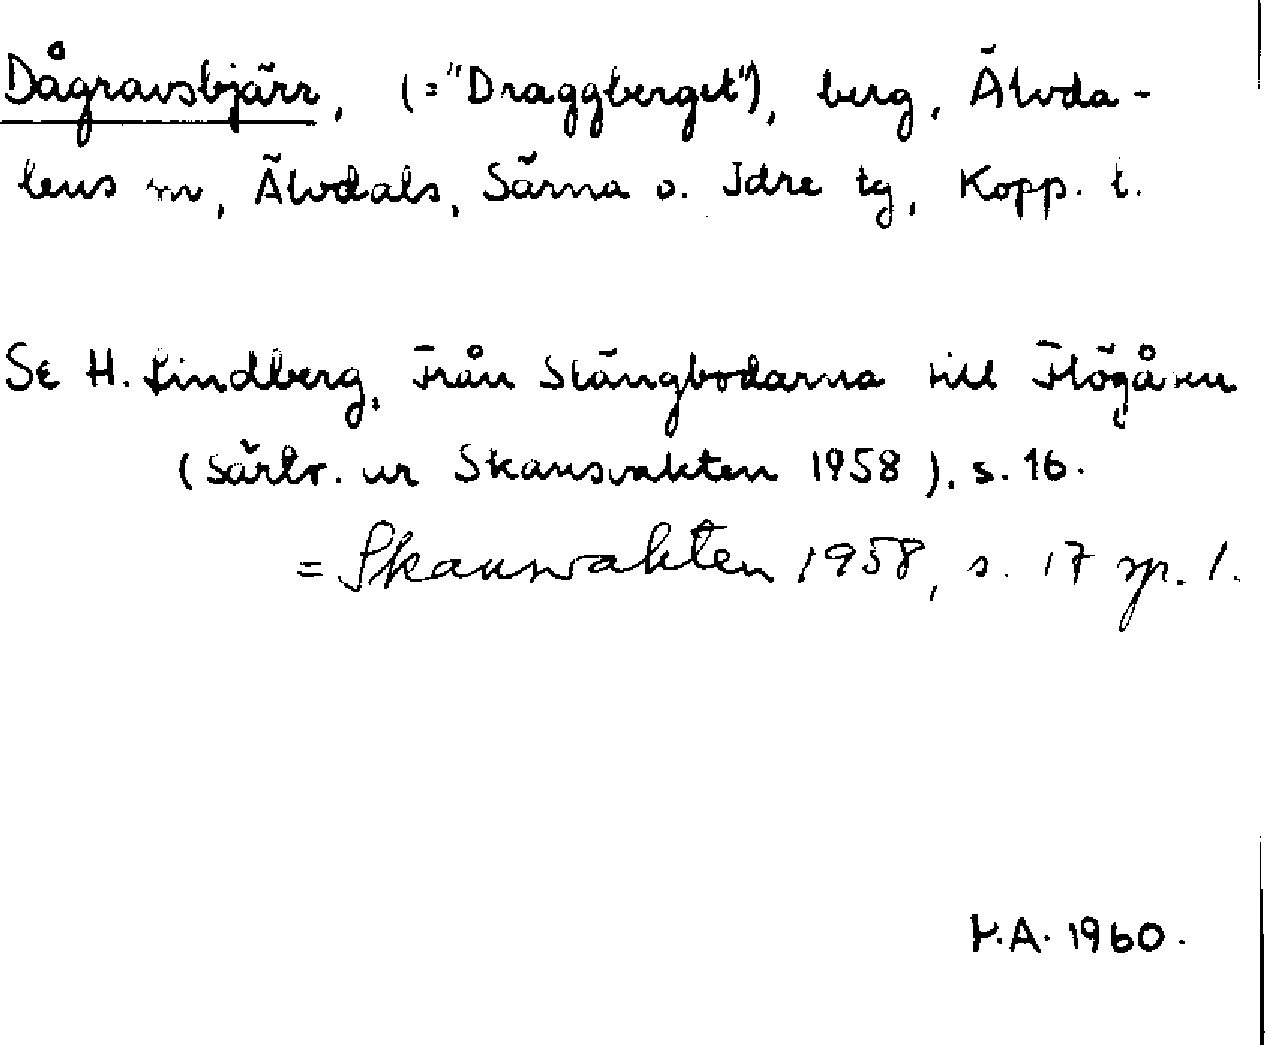 Dågravsbjärr, (="Draggberget"), berg, Älvda-
lens sn, Älvdals, Särna o. Idre tg, Kopp. l.
Se H. Lindberg, Från Stängbodarna till Flögåsen
(särtr. ur Skansvakten 1958), s. 16.
= Skansvakten 1958, s. 17 sp. 1.
H.A. 1960.